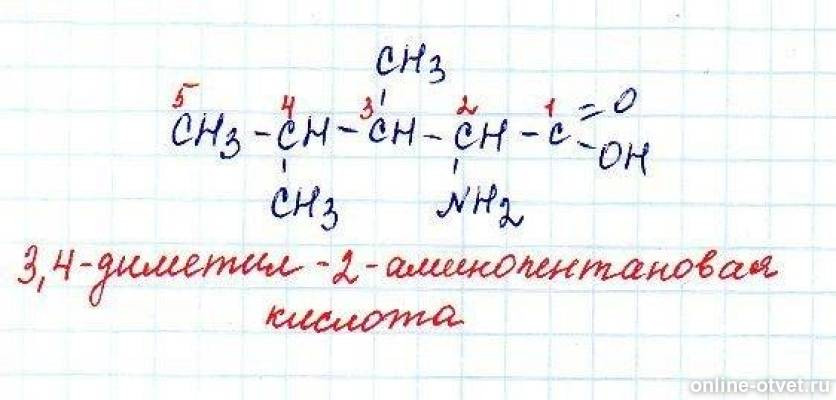 CH3
5 4 3 2 1
CH3 - CH - CH - CH - C = O
- OH
CH3 NH2
3,4-диметил-2-аминопентановая
кислота
online-otvet.ru